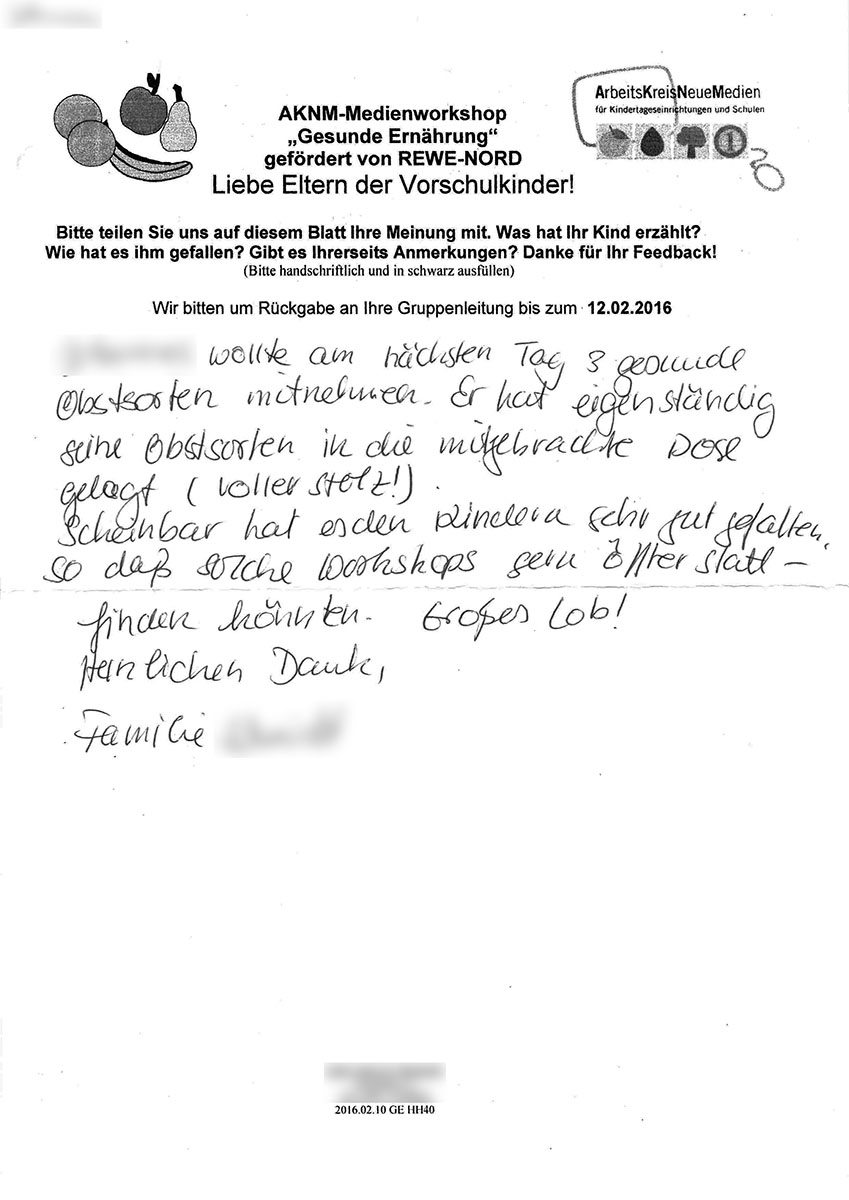 AKNM-Medienworkshop
„Gesunde Ernährung“
gefördert von REWE-NORD
Liebe Eltern der Vorschulkinder!
ArbeitsKreisNeueMedien
für Kindertageseinrichtungen und Schulen
Bitte teilen Sie uns auf diesem Blatt Ihre Meinung mit. Was hat Ihr Kind erzählt?
Wie hat es ihm gefallen? Gibt es Ihrerseits Anmerkungen? Danke für Ihr Feedback!
(Bitte handschriftlich und in schwarz ausfüllen)
Wir bitten um Rückgabe an Ihre Gruppenleitung bis zum 12.02.2016
wollte am nächsten Tag 3 gesunde
Obstsorten mitnehmen. Er hat eigenständig
seine Obstsorten in die mitgebrachte Dose
gelegt (voller Stolz!).
Scheinbar hat es den Kindern sehr gut gefallen,
so daß solche Workshops gern öfter statt-
finden könnten. Großes Lob!
Herzlichen Dank,
Familie
2016.02.10 GE HH40